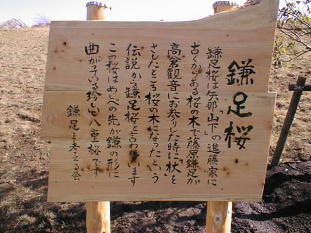 鎌足桜
鎌足桜は矢部山下の進藤家に
古くからある桜の木で藤原鎌足が
高倉観音にお参りした時に杖を
さしたところ桜の木になったという
伝説から鎌足桜といわれています
この桜はめしべの先が鎌の形に
曲がっている珍しい八重桜です
鎌足を考える会